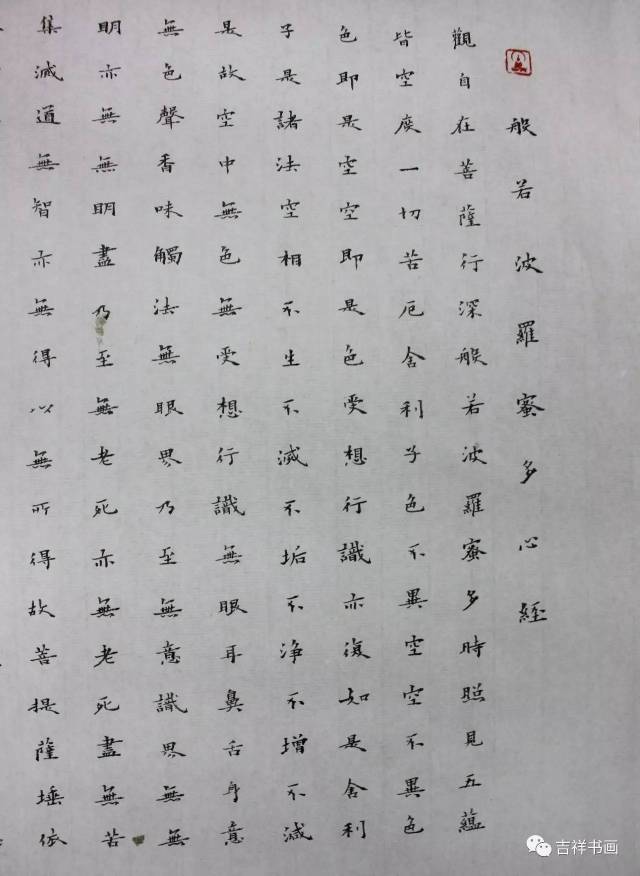 般若波羅蜜多心經
觀自在菩薩行深般若波羅蜜多時照見五蘊
皆空度一切苦厄舍利子色不異空空不異色
色即是空空即是色受想行識亦復如是舍利
子是諸法空相不生不滅不垢不淨不增不減
是故空中無色無受想行識無眼耳鼻舌身意
無色聲香味觸法無眼界乃至無意識界無無
明亦無無明盡乃至無老死亦無老死盡無苦
集滅道無智亦無得以無所得故菩提薩埵依
吉祥书画